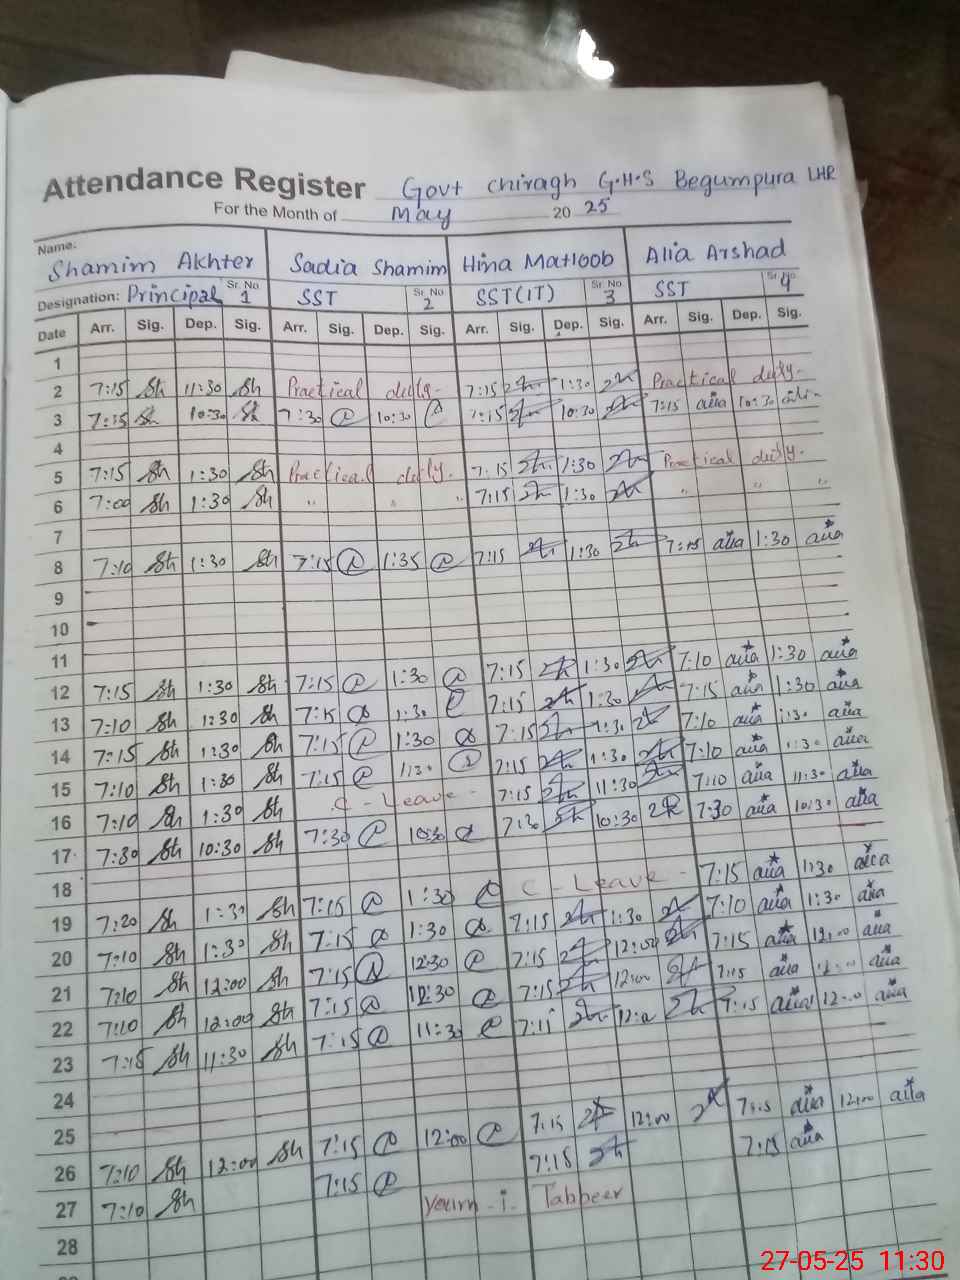 Attendance Register Govt Chiragh G.H.S Begumpura LHR
For the Month of May 20 25
Name: Shamim Akhter Sadia Shamim Hina Matloob Alia Arshad
Designation: Principal Sr. No 1 SST Sr. No 2 SST (IT) Sr. No 3 SST Sr. No 4
Date Arr. Sig. Dep. Sig. Arr. Sig. Dep. Sig. Arr. Sig. Dep. Sig. Arr. Sig. Dep. Sig.
1
2 7:15 Sh 11:30 Sh Practical duty. 7:15 1:30 Practical duty.
3 7:15 Sh 10:30 Sh 7:30 10:30 7:15 10:30 7:15 alia 10:30
4
5 7:15 Sh 1:30 Sh Practical duty. 7:15 1:30 Practical duty.
6 7:00 Sh 1:30 Sh " " " 7:15 1:30 " " "
7
8 7:10 Sh 1:30 Sh 7:15 1:35 7:15 1:30 7:15 alia 1:30 alia
9
10
11
12 7:15 Sh 1:30 Sh 7:15 1:30 7:15 1:30 7:10 alia 1:30 alia
13 7:10 Sh 1:30 Sh 7:15 1:30 7:15 1:30 7:15 alia 1:30 alia
14 7:15 Sh 1:30 Sh 7:15 1:30 7:15 1:30 7:10 alia 1:30 alia
15 7:10 Sh 1:30 Sh 7:15 1:30 7:15 1:30 7:10 alia 1:30 alia
16 7:10 Sh 1:30 Sh C - Leave - 7:15 11:30 7:10 alia 11:30 alia
17 7:30 Sh 10:30 Sh 7:30 10:30 7:30 10:30 7:30 alia 10:30 alia
18
19 7:20 Sh 1:30 Sh 7:15 1:30 C - Leave - 7:15 alia 1:30 alia
20 7:10 Sh 1:30 Sh 7:15 1:30 7:15 1:30 7:10 alia 1:30 alia
21 7:10 Sh 12:00 Sh 7:15 12:30 7:15 12:00 7:15 alia 12:00 alia
22 7:10 Sh 12:00 Sh 7:15 12:30 7:15 12:00 7:15 alia 12:00 alia
23 7:15 Sh 11:30 Sh 7:15 11:30 7:15 7:15 alia 12:00 alia
24
25
26 7:10 Sh 12:00 Sh 7:15 12:00 7:15 12:00 7:15 alia 12:00 alia
27 7:10 Sh 7:15 7:15 7:15 alia
Youm - i - Tabbeer
28
27-05-25 11:30